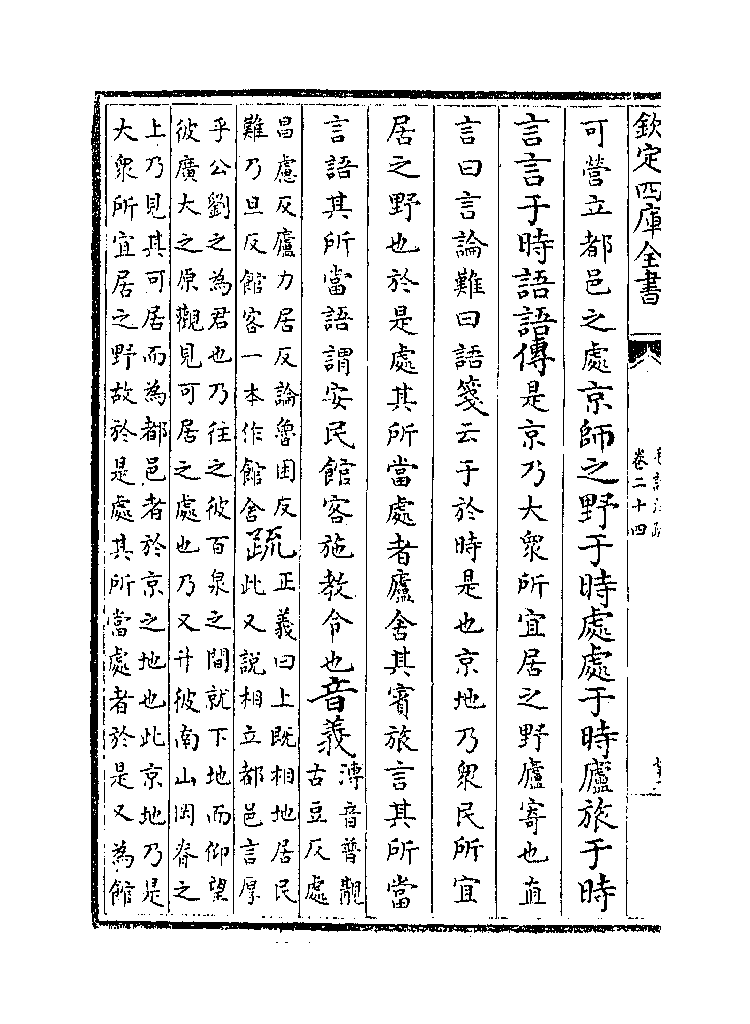 欽定四庫全書
卷二十四
可營立都邑之處京師之野于時處處于時廬旅于時
言言于時語語傳是京乃大衆所宜居之野廬寄也直
言曰言論難曰語箋云于於時是也京地乃衆民所宜
居之野也於是處其所當處者廬舍其賓旅言其所當
言語其所當語謂安民館客施教令也音義
溥音普覯
古豆反處
昌慮反廬力居反論魯困反
難乃旦反館客一本作館舍
疏
正義曰上既相地居民
此又說相立都邑言厚
乎公劉之為君也乃往之彼百泉之間就下地而仰望
彼廣大之原觀見可居之處也乃又升彼南山岡脊之
上乃見其可居而為都邑者於京之地也此京地乃是
大衆所宜居之野故於是處其所當處者於是又為館